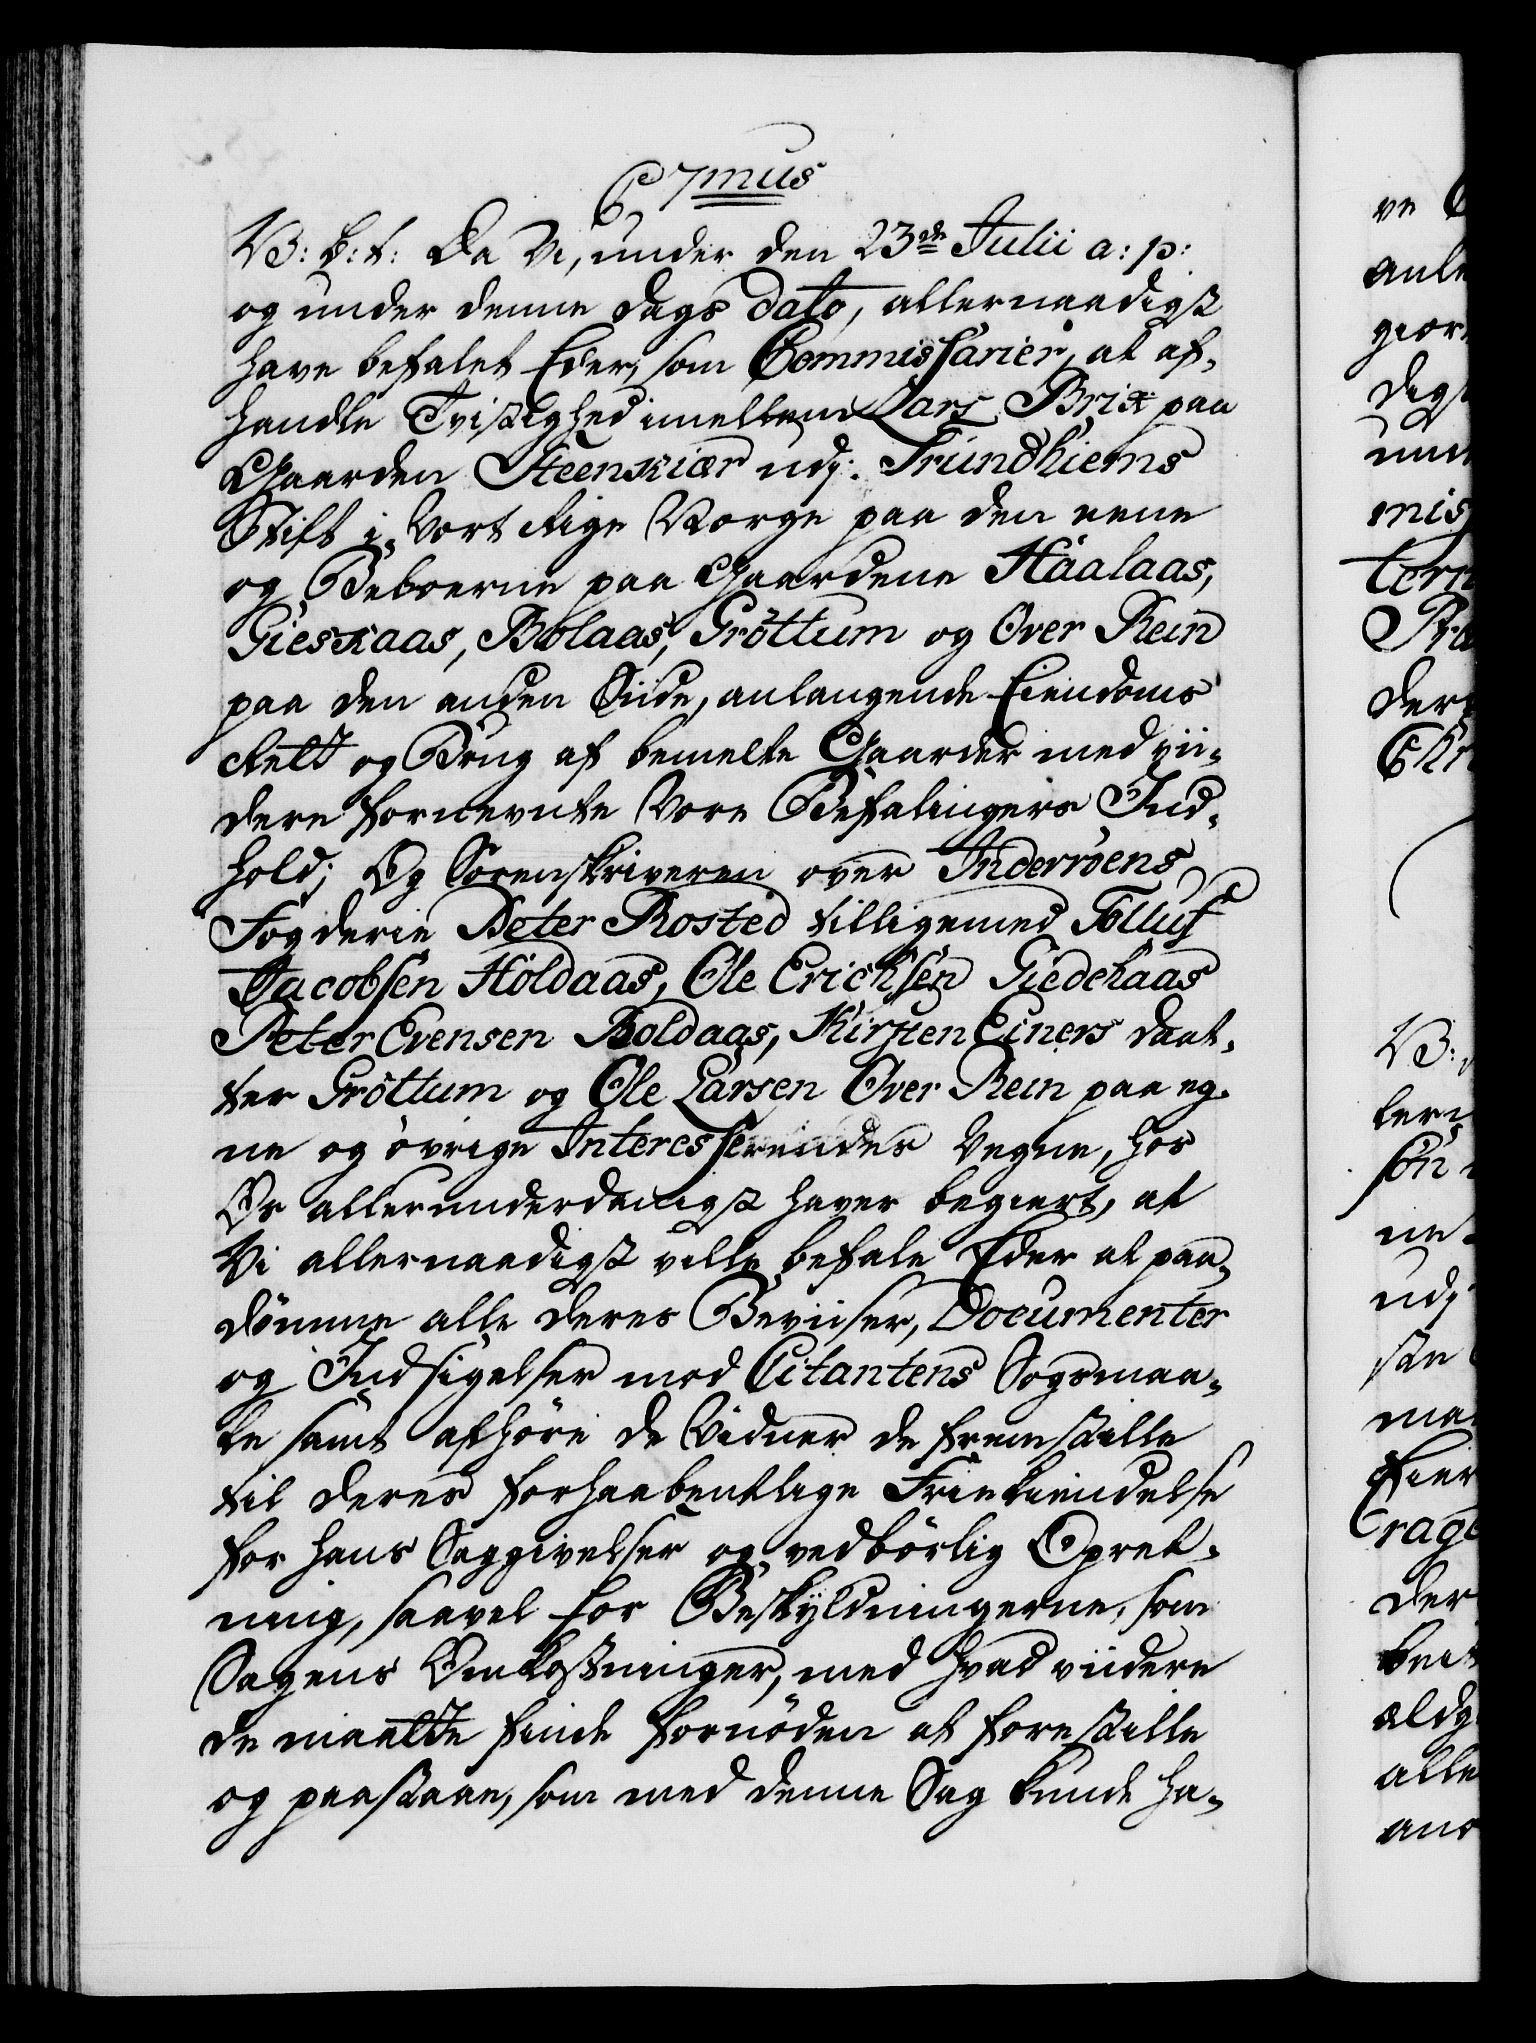 P 7mus
V: b: t: Da Vi, under den 23de Julii a: p:
og under denne Dags dato, allernaadigst
have befalet Eder, som Commissarier, at af-
handle Tvistighed imellem Lars Brix paa
Gaarden Steenkiær udj. Trundhiems
Stift i Vort Rige Norge paa den eene
og Beboerne paa Gaardene Haalaas,
Gieskaas, Bolaas, Gröttum og Over Rein
paa den anden Siide, anlangende Eiendoms
Rett og Brug af bemelte Gaarder med vii-
dere fornevnte Vore Befalingers Ind-
hold; Og Sorenskriveren over Inderröens
Fogderie Peter Rosted tilligemed Tolluf
Jacobsen Holdaas, Ole Erichsen Giedehaas
Peter Evensen Boldaas, Kirsten Einers Daat-
ter Gröttum og Ole Larsen Over Rein paa eg-
ne og övrige Interesserendes Vegne, hos
Os allerunderdanigst haver begiert, at
Vi allernaadigst ville befale Eder at paa-
dömme alle deres Beviiser, Documenter
og Indsigelser mod Citantens Sogsmaa-
le samt afhöre de Vidner de fremstille
til deres forhaabentlige Friekiendelse
for hans Saggivelser og vedbörlig Opret-
ning, saavel for Beskyldningerne, som
Sagens Omkostninger, med hvad viidere
de maatte finde fornöden at forestille
og paastaae, som med denne Sag kunde ha-